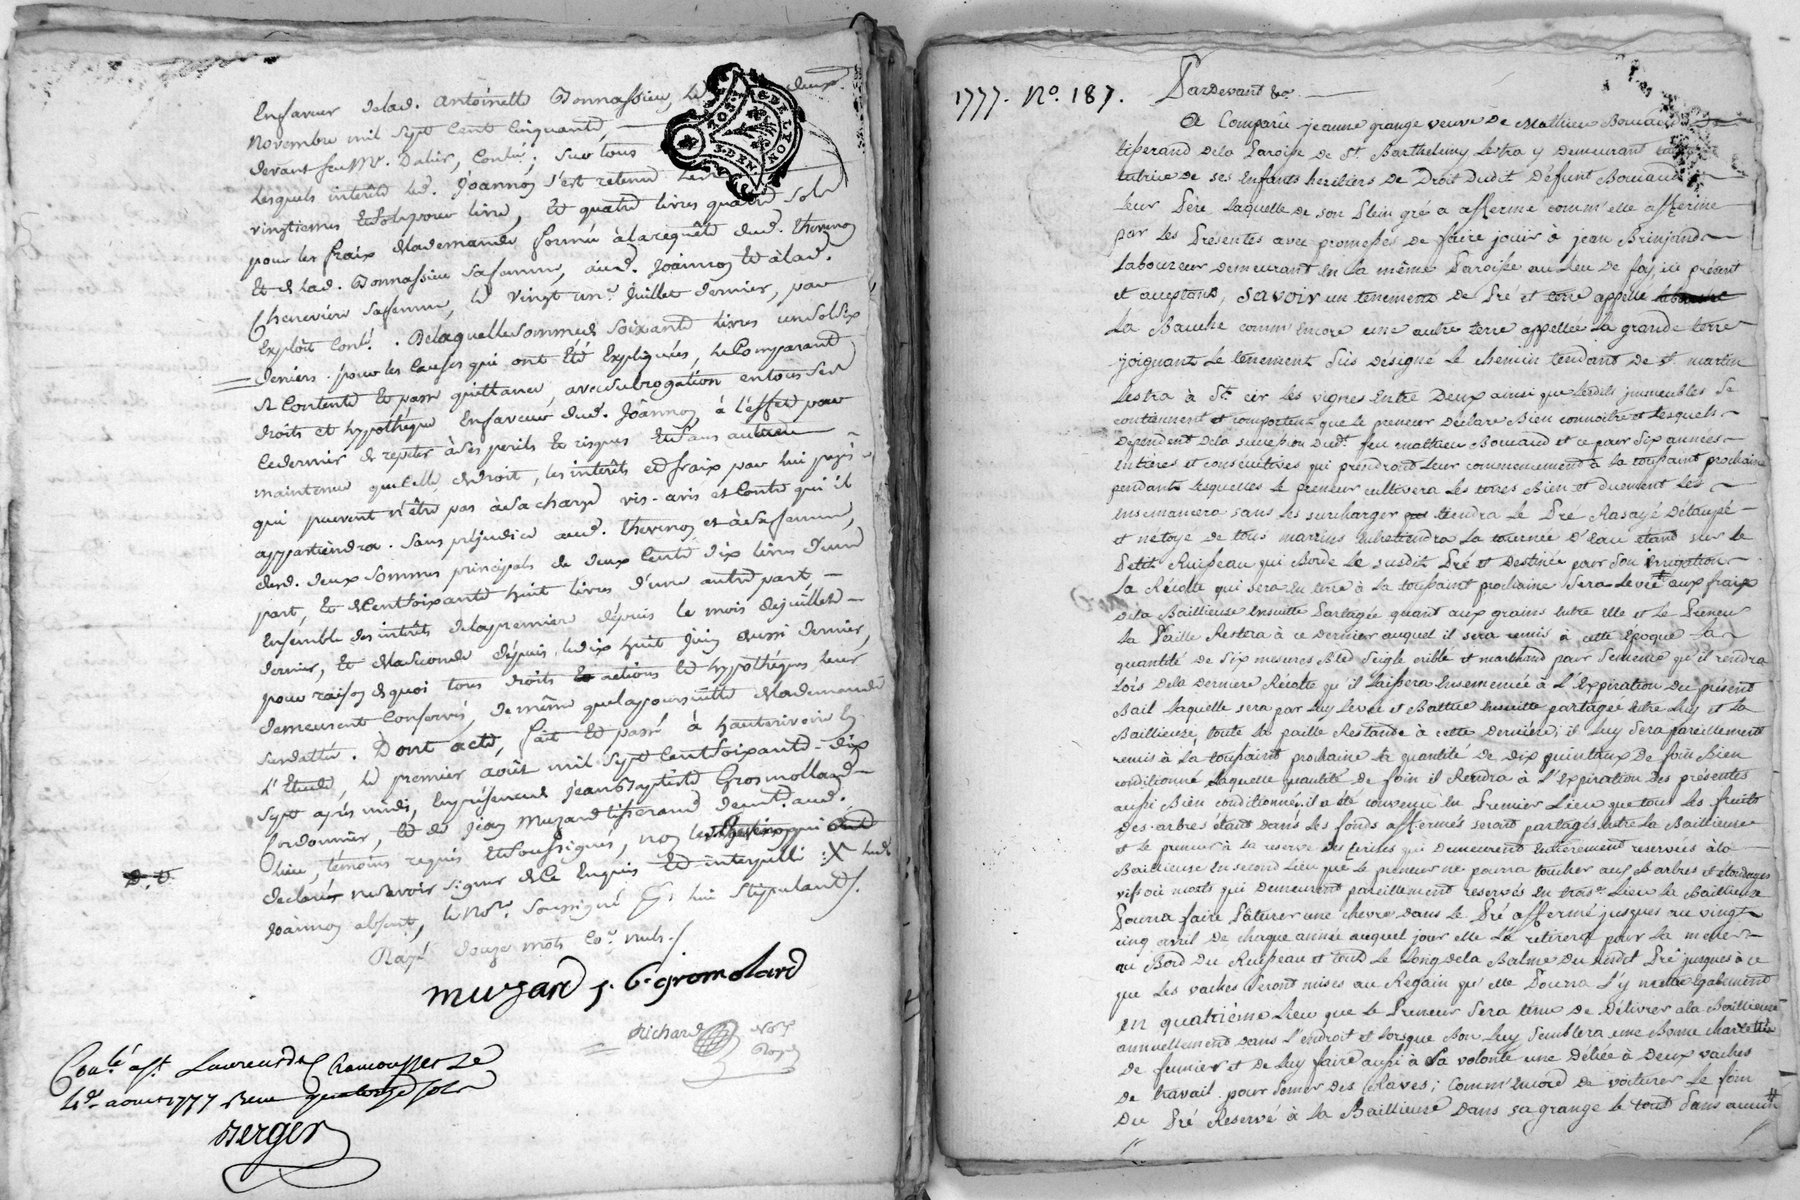 Enfaveur delad. Antoinette Bonnassieu, le deux
Novembre mil sept Cent Cinquante,
devant feu Me. Dalier, Conté; Sur tous
lesquels intérêts led. Joannon s'est retenu les
vingtiemes et sols pour livre, et quatre livres quatre sols
pour les fraix delademande formée àlarequête dud. thevenon
Et delad. Bonnassieu safemme, aud. Joannon et àlad.
Chenevière safemme, le vingt un. Juillet dernier, par
Exploit Cont. . Delaquelle somme de soixante livres un sol six
deniers . pour les Causes qui ont Eté Expliquées, le Comparant
se Contente et passe quittance, avec subrogation en tous ses
droits et hypothéque Enfaveur dud. Joannon à l'effet par
Cedernier de repeter à ses perils et risques et sans autre
maintenue que telle de droit, les intérêts et fraix par lui payés
qui peuvent n'être pas àsa charge vis-avis et Contre qui il
appartiendra . Sans préjudice aud. thevenon et àsafemme,
desd. deux sommes principales de deux Cents dix livres d'une
part, Et de Cent soixante huit livres d'une autre part,
Ensemble des intérêts delapremiere depuis le mois dejuillet
dernier, et delaseconde depuis le dix huit Juin aussi dernier,
pour raison dequoi tous droits et actions et hypothéques leur
demeurent Conservés, de même que lapoursuitte delademande
susdatte . Dont acte, fait et passé à hauterivoire En
l'Etude, le premier août mil sept Cent soixante-dix
sept après midi, En présence de jean Baptiste Grosmollard
Cordonnier, Et de Jean Muzard tisserand demt. aud.
lieu, témoins requis et soussignés, non les parties qui ont
declaré ne savoir signer de Ce Enquis et interpellé :X led.
Joannon absent, le Nore. Soussigné pr. lui Stipulant.
Rayé douze mots Co. nuls.
D. V.
muzard J. B. gromolard
Richard Nore
Royal
Conlé à St. Laurent de Chamousset Le
14 aoust 1777 Reçu quatorze sols
Berger
1777. No. 187. Pardevant &c.
A Comparu jeanne grange veuve de Mathieu Bouiaud
tisserand dela Paroisse de St. Barthelemy Lestra y demeurant
tutrice de ses Enfants heritiers de Droit Dudit Défunt Bouiaud
Leur Père, Laquelle de son Plein gré a affermé comm'elle afferme
par les Présentes avec promesses de faire jouir à jean Brinjard
Laboureur demeurant En la même Paroisse au lieu de fay ici présent
et acceptant, Savoir un tenement de Pré et terre appellé
La Bauche comm'Encore une autre terre appellée La grande terre
joignant Le tenement Sus designé Le chemin tendant de st. martin
Lestra à St. cir les vignes Entre Deux ainsi que Lesdits immeubles Se
contiennent et comportent que Le preneur Déclare Bien connoitre et Lesquels
Dépendent dela succession dudt. feu mathieu Bouiaud et ce pour Six années
Entières et consécutives qui prendront Leur commencement à la toussaint prochaine
pendant Lesquelles Le preneur cultivera Les terres Bien et duement Les
Ensemancera sans Les surcharger tendra Le Pré Rasayé Détaupé
et nétoye de tous marrins Entretiendra La tournée D'Eau étant sur Le
Petit Ruisseau qui Borde Le susdit Pré et Destinée pour Son irrigation
La Récolte qui sera En terre à La toussaint prochaine Sera Levée aux fraix
dela Baillieuse Ensuitte Partagée quant aux grains Entre Elle et Le Preneur
La Paille Restera à ce Dernier auquel il sera remis à cette Epoque La
quantité de Six mesures Bled Seigle crible et marchand pour Semence qu'il rendra
Lors dela Derniere Récolte qu'il Laissera Ensemencée à L'Expiration Du présent
Bail Laquelle sera par Luy Levée et Battue Ensuitte partagée Entre Luy et La
Baillieuse, toute La paille Restante à cette Dernière; il Luy Sera pareillement
remis à La toussaint prochaine La quantité de Dix quintaux De foin Bien
conditionné Laquelle quantité de foin il Rendra à L'Expiration Des présentes
aussi Bien conditionné, il a été convenu En Premier Lieu que tous Les fruits
Des arbres étant dans Les fonds affermés seront partagés Entre La Baillieuse
et Le preneur à La reserve des cerises qui Demeurent Entièrement reservées à la
Baillieuse En second Lieu que Le preneur ne pourra toucher aux Arbres et Elondages
vifs ou morts qui Demeurent pareillement reservés En trois. Lieu La Baillieuse
Pourra faire Pâturer une chevre dans Le Pré affermé jusques au vingt
cinq avril De chaque année auquel jour elle La retirera pour La mener
au Bord Du Ruisseau et tout Le Long dela Balme du susdit Pré jusques à ce
que Les vaches seront mises au Regain qu'elle Pourra L'y mettre Egalement
En quatrième Lieu que Le Preneur Sera tenu de Délivrer à la Baillieuse
annuellement dans L'endroit et Lorsque Bon Luy Semblera une Bonne charretée
de feumier et de Luy faire aussi à Sa volonté une Déliée à Deux vaches
de travail pour semer des Raves; Comm'Encore de voiturer Le foin
Du Pré Reservé à la Baillieuse Dans sa grange Le tout Sans aucun